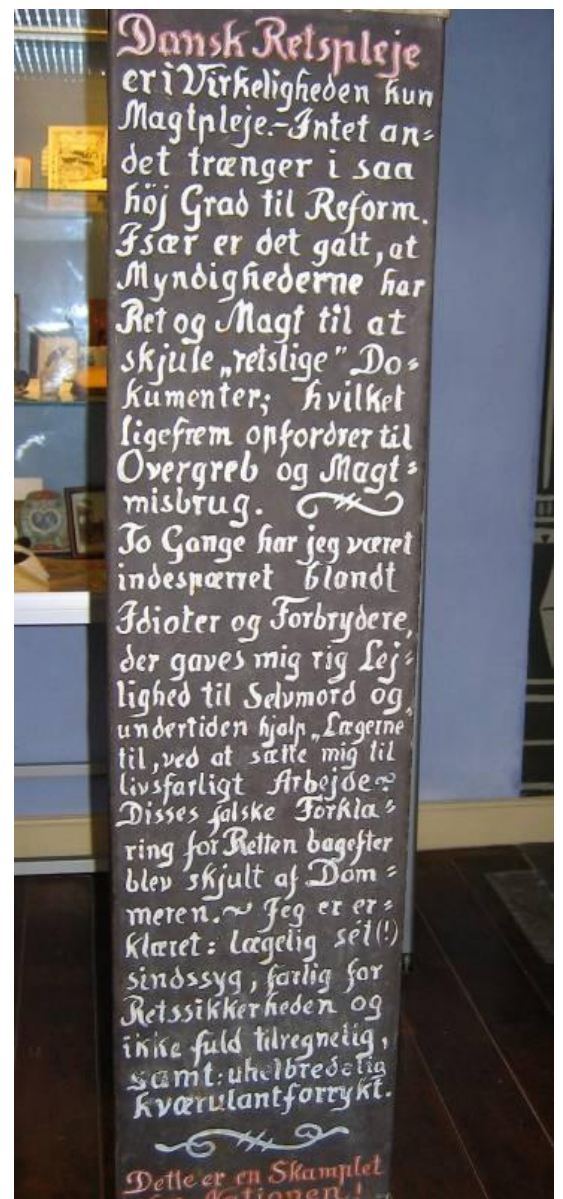 Dansk Retspleje
er i Virkeligheden kun
Magtpleje.-Intet an=
det trænger i saa
höj Grad til Reform.
Især er det galt, at
Myndighederne har
Ret og Magt til at
skjule „retslige” Do=
kumenter; hvilket
ligefrem opfordrer til
Overgreb og Magt=
misbrug.
To Gange har jeg været
indespærret blandt
Idioter og Forbrydere,
der gaves mig rig Lej=
lighed til Selvmord og
undertiden hjalp „Lægerne”
til, ved at sætte mig til
livsfarligt Arbejde~
Disses falske Forkla=
ring for Retten bagefter
blev skjult af Dom=
meren.~ Jeg er er=
klæret: lægelig sét(!)
sindssyg, farlig for
Retssikkerheden og
ikke fuld tilregnelig,
samt: uhelbredelig
kværulantforrykt.
Dette er en Skamplet
Nationen!